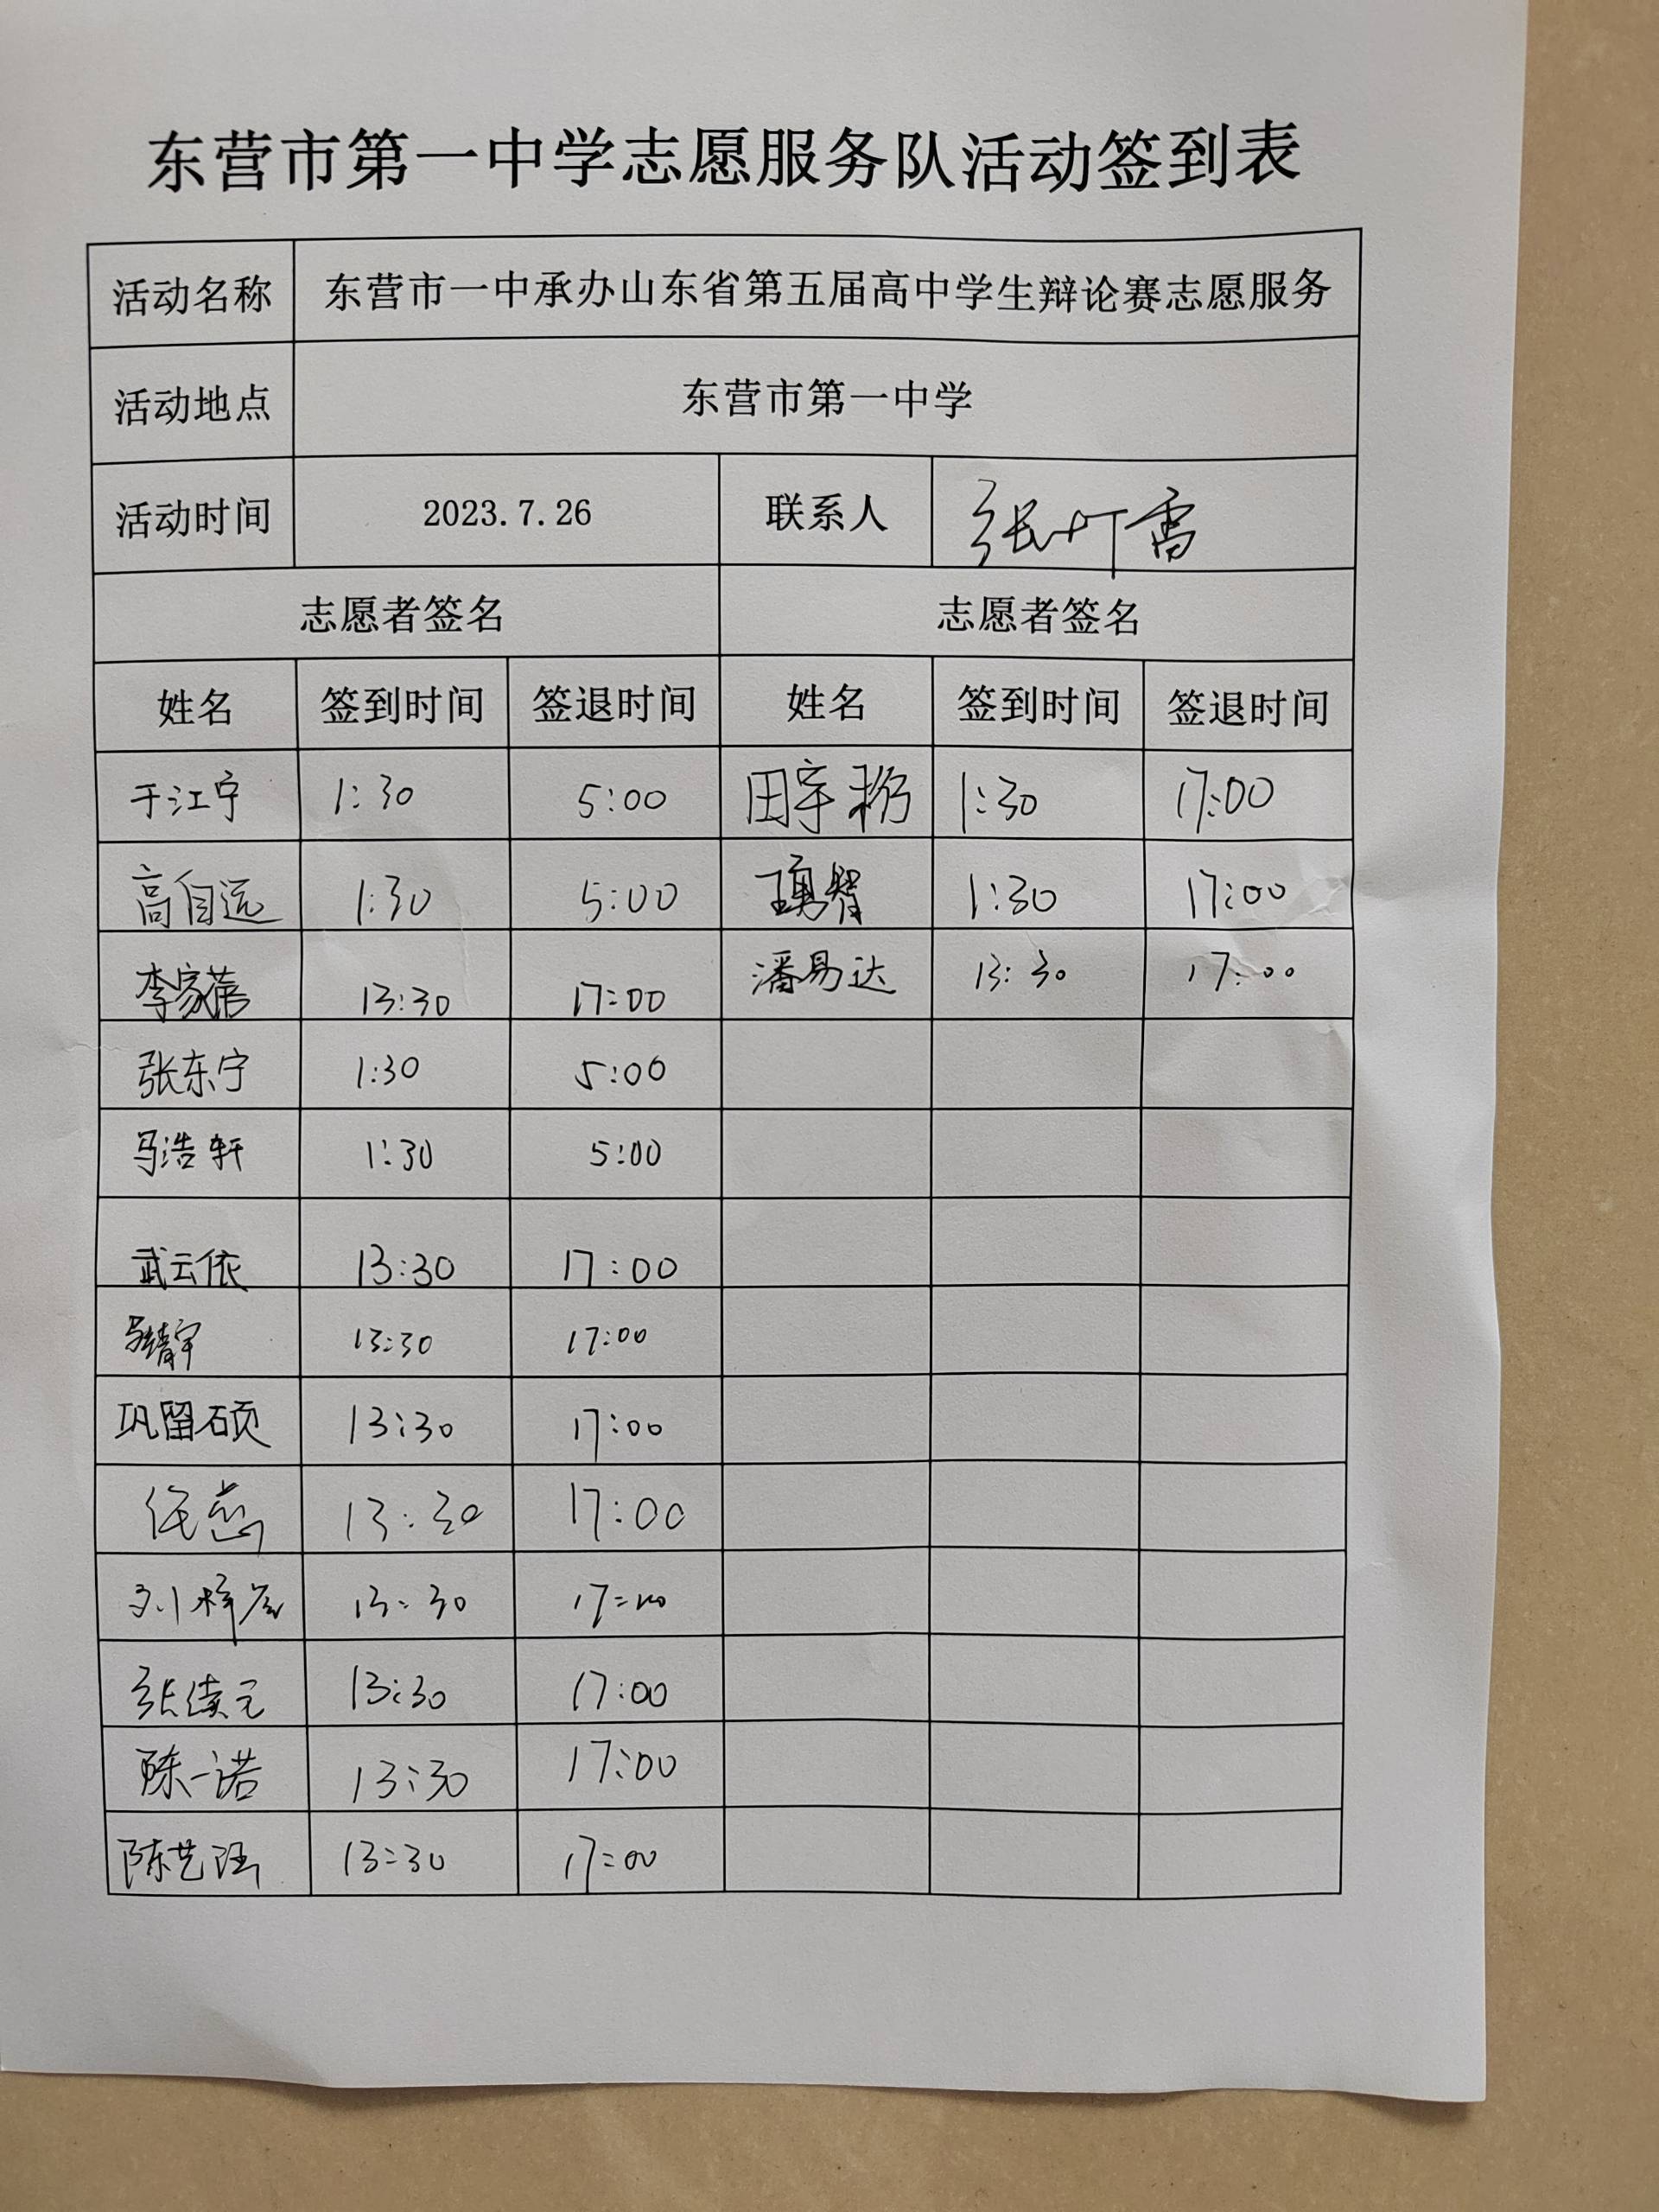 东营市第一中学志愿服务队活动签到表
活动名称 东营市一中承办山东省第五届高中学生辩论赛志愿服务
活动地点 东营市第一中学
活动时间 2023.7.26 联系人
志愿者签名 志愿者签名
姓名 签到时间 签退时间 姓名 签到时间 签退时间
于江宁 1:30 5:00 田宇 1:30 17:00
高自远 1:30 5:00 1:30 17:00
李家蓓 13:30 17:00 潘易达 13:30 17:00
张东宁 1:30 5:00
马浩轩 1:30 5:00
武云依 13:30 17:00
13:30 17:00
巩留硕 13:30 17:00
任 13:30 17:00
刘梓 13:30 17:00
张续元 13:30 17:00
陈一诺 13:30 17:00
陈艺 13:30 17:00